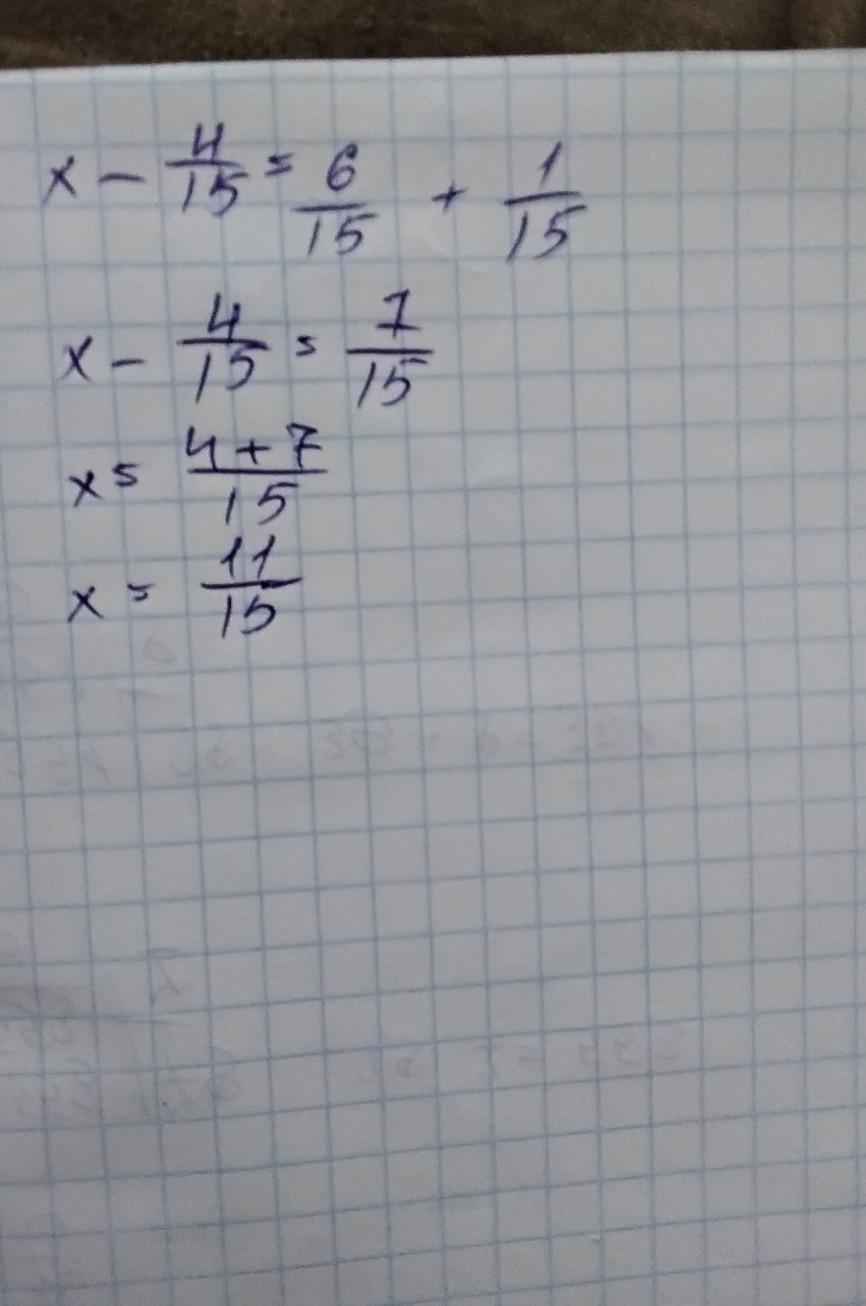 x - 4/15 = 6/15 + 1/15
x - 4/15 = 7/15
x = 4+7/15
x = 11/15